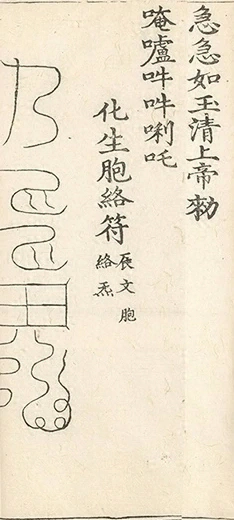 急急如玉清上帝勑
唵嚧吽吽唎吒
化生胞絡符
辰文胞
絡炁